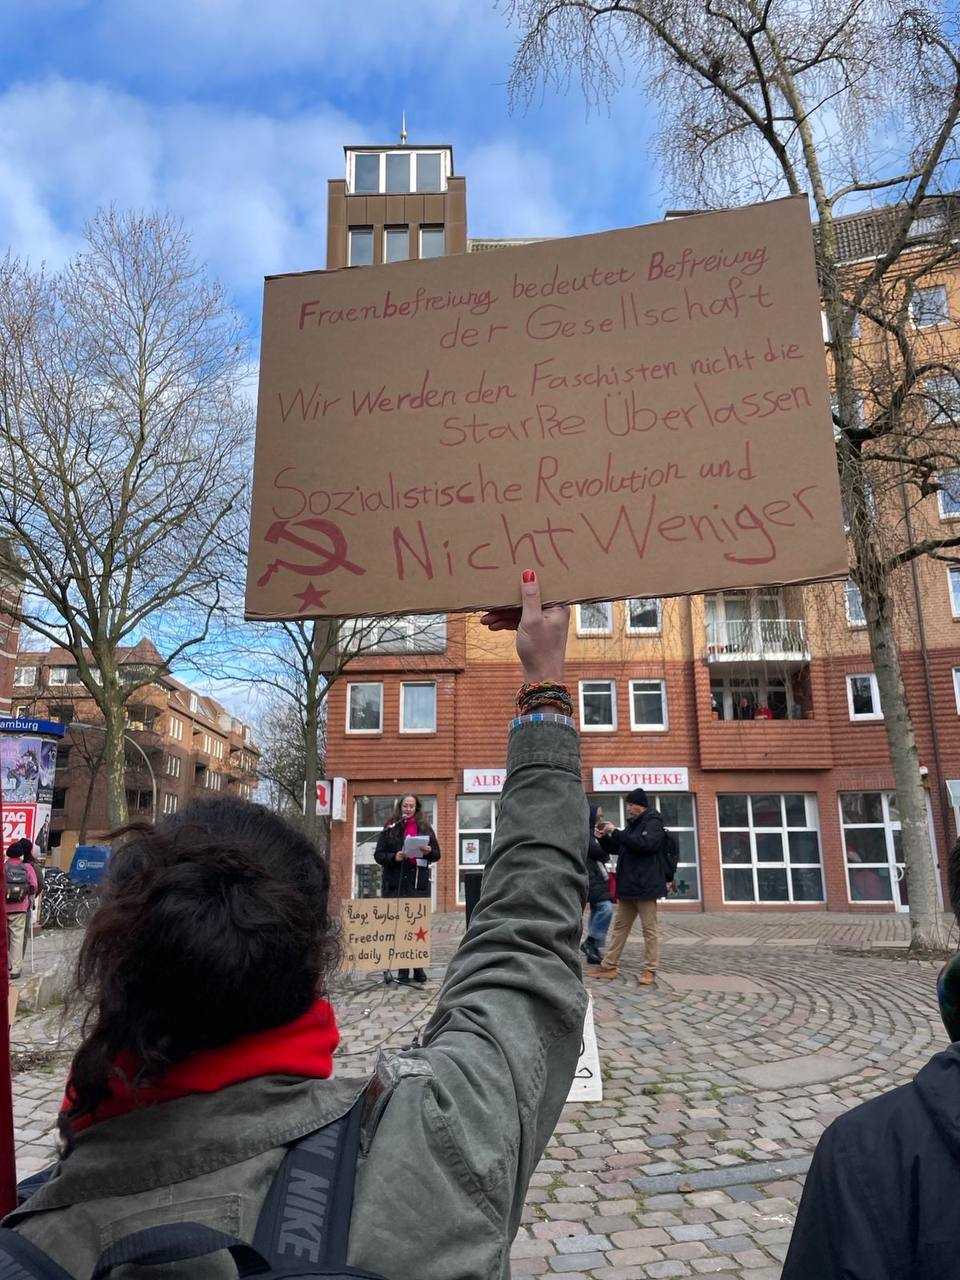 Fraenbefreiung bedeutet Befreiung
der Gesellschaft
Wir Werden den Faschisten nicht die
Starße Überlassen
Sozialistische Revolution und
Nicht Weniger
amburg
TAG
24
ALBA
APOTHEKE
الحرية ممارسة يومية
Freedom is
a daily Practice
NIKE